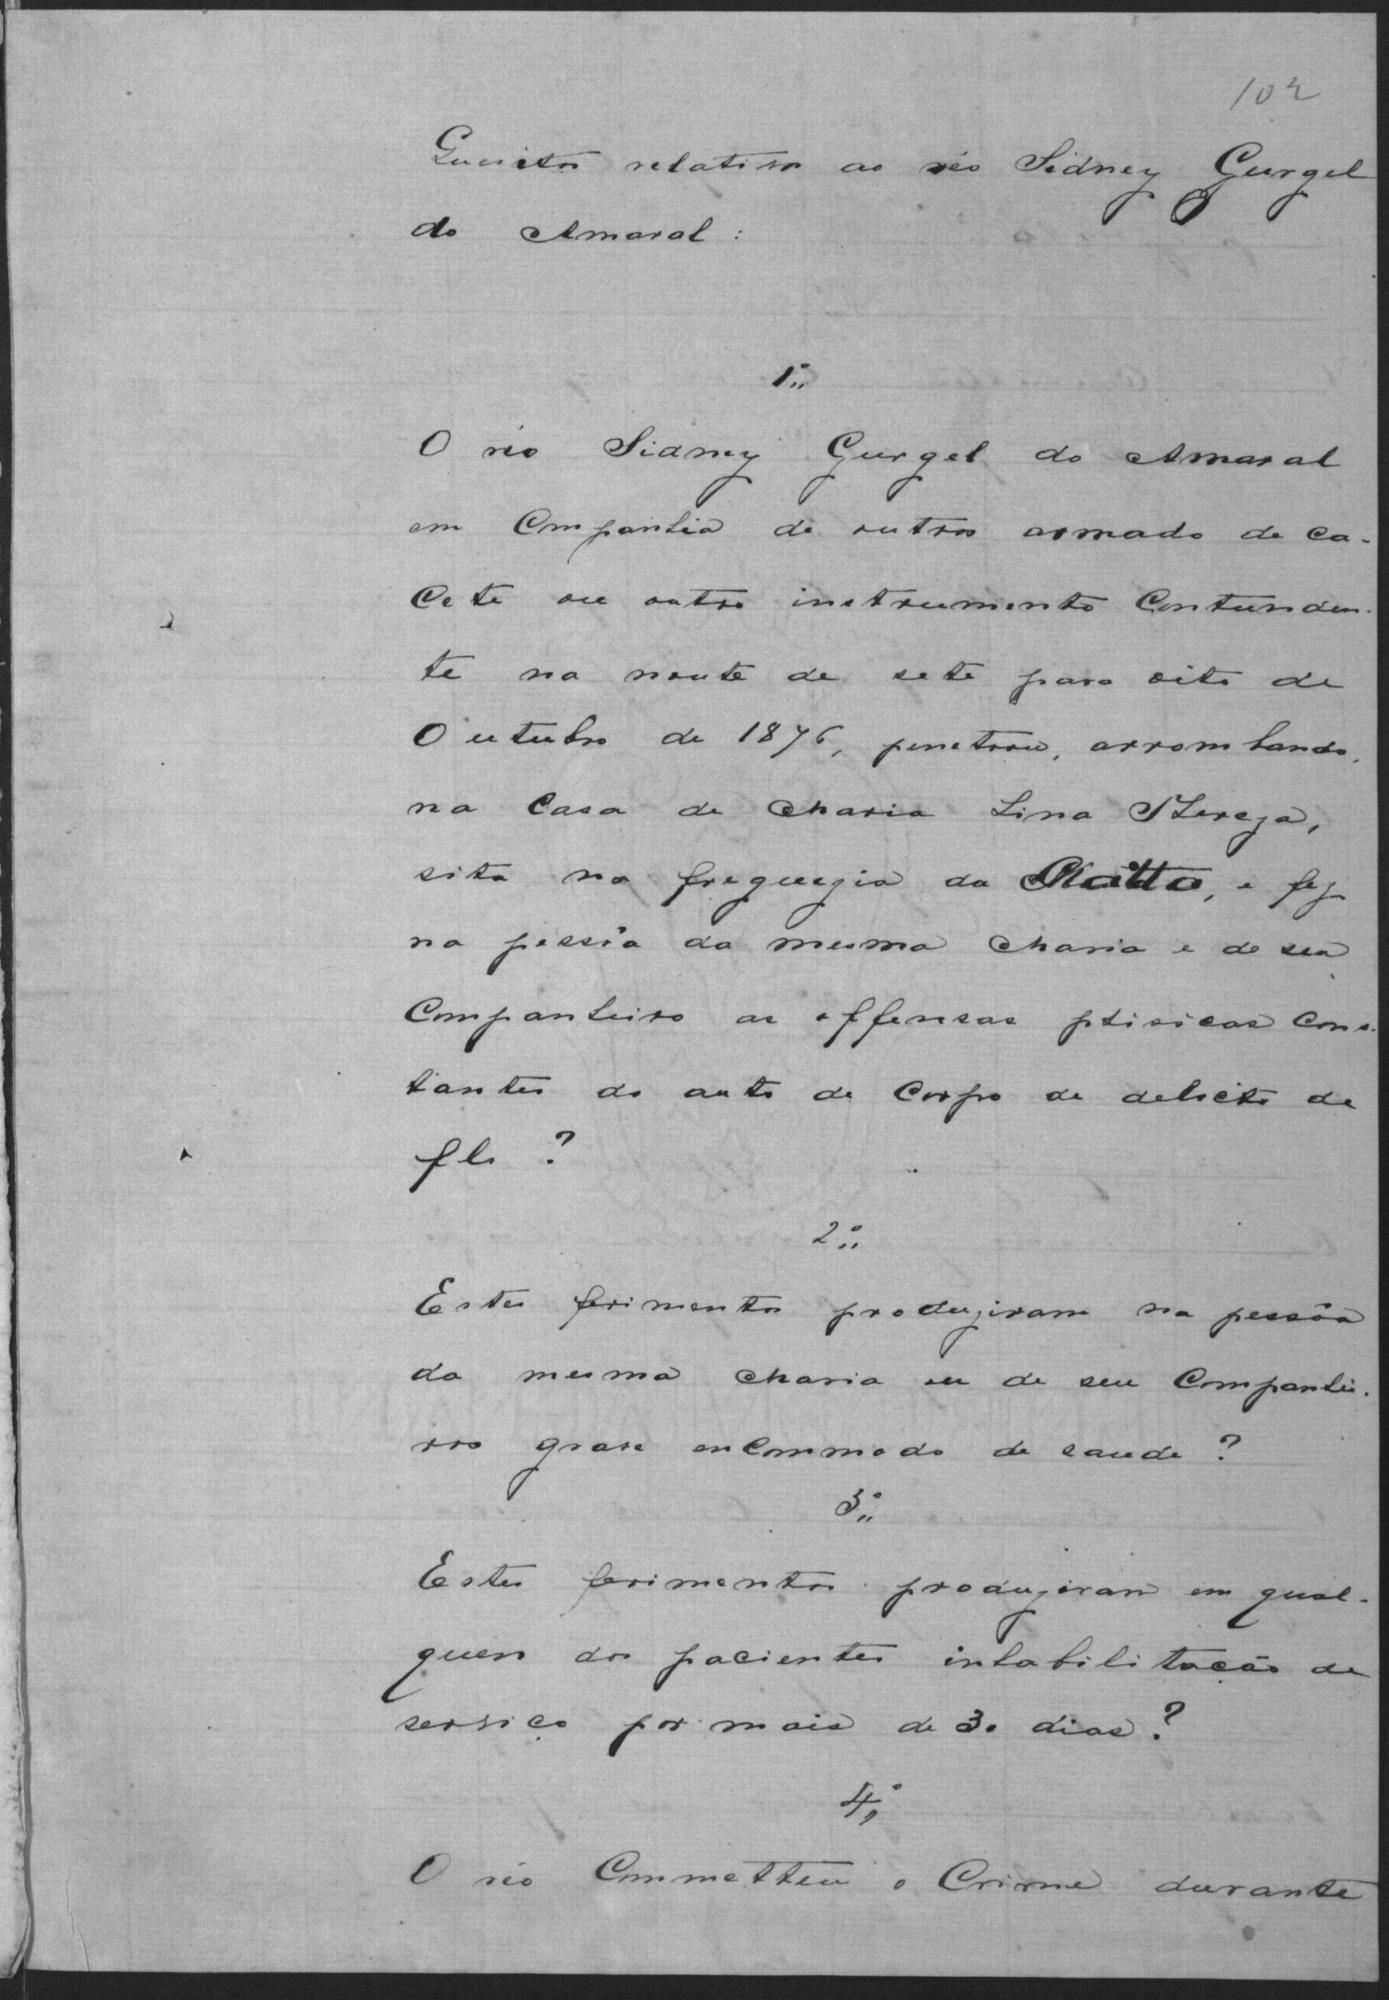 102
Quesitos relativos ao réo Sidney Gurgel
do Amaral:
1º
O réo Sidney Gurgel do Amaral
em Companhia de outros armado de ca-
cete ou outro instrumento Contunden-
te na noute de sete para oito de
Outubro de 1876, penetrou, arrombando,
na Casa de Maria Lina Thereza,
sita na freguezia da Matto, e fez
na pessôa da mesma Maria e de seu
Companheiro as offensas phisicas Cons-
tantes do auto de Corpo de delicto de
fls ?
2º
Estes ferimentos produziram na pessôa
da mesma Maria ou de seu Companhei-
ro grave encommodo de saude ?
3º
Estes ferimentos produziram em qual-
quer dos pacientes inhabilitacão de
serviço por mais de 30 dias ?
4º
O réo Commetteu o Crime durante